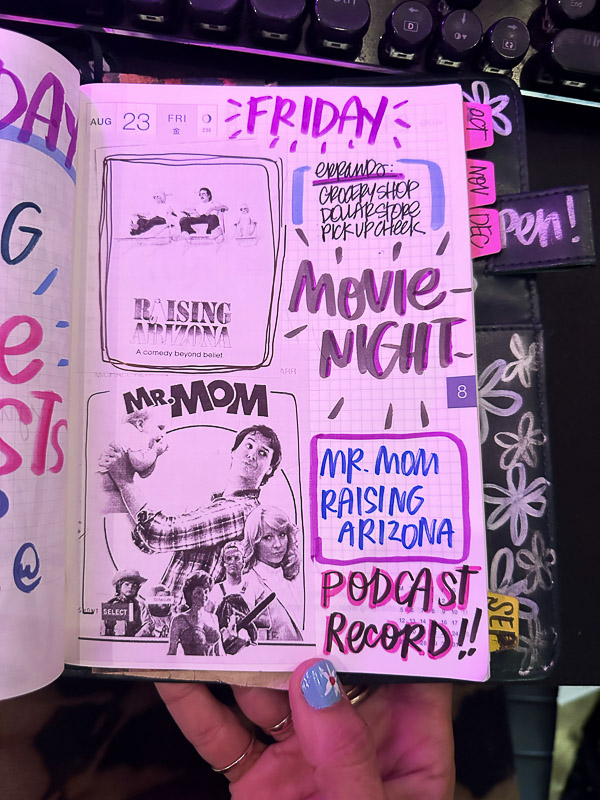 DAY
G
e
STS
e
AUG 23 FRI
金
FRIDAY
ERRANDS:
GROCERY SHOP
DOLLAR STORE
PICK UP CHECK
RAISING
ARIZONA
A comedy beyond belief.
MOVIE
NIGHT
8
MR. MOM
SELECT
MR. MOM
RAISING
ARIZONA
PODCAST
RECORD!!
OCT
NOV
DEC
Pen!
SEP
Ctrl
D
End